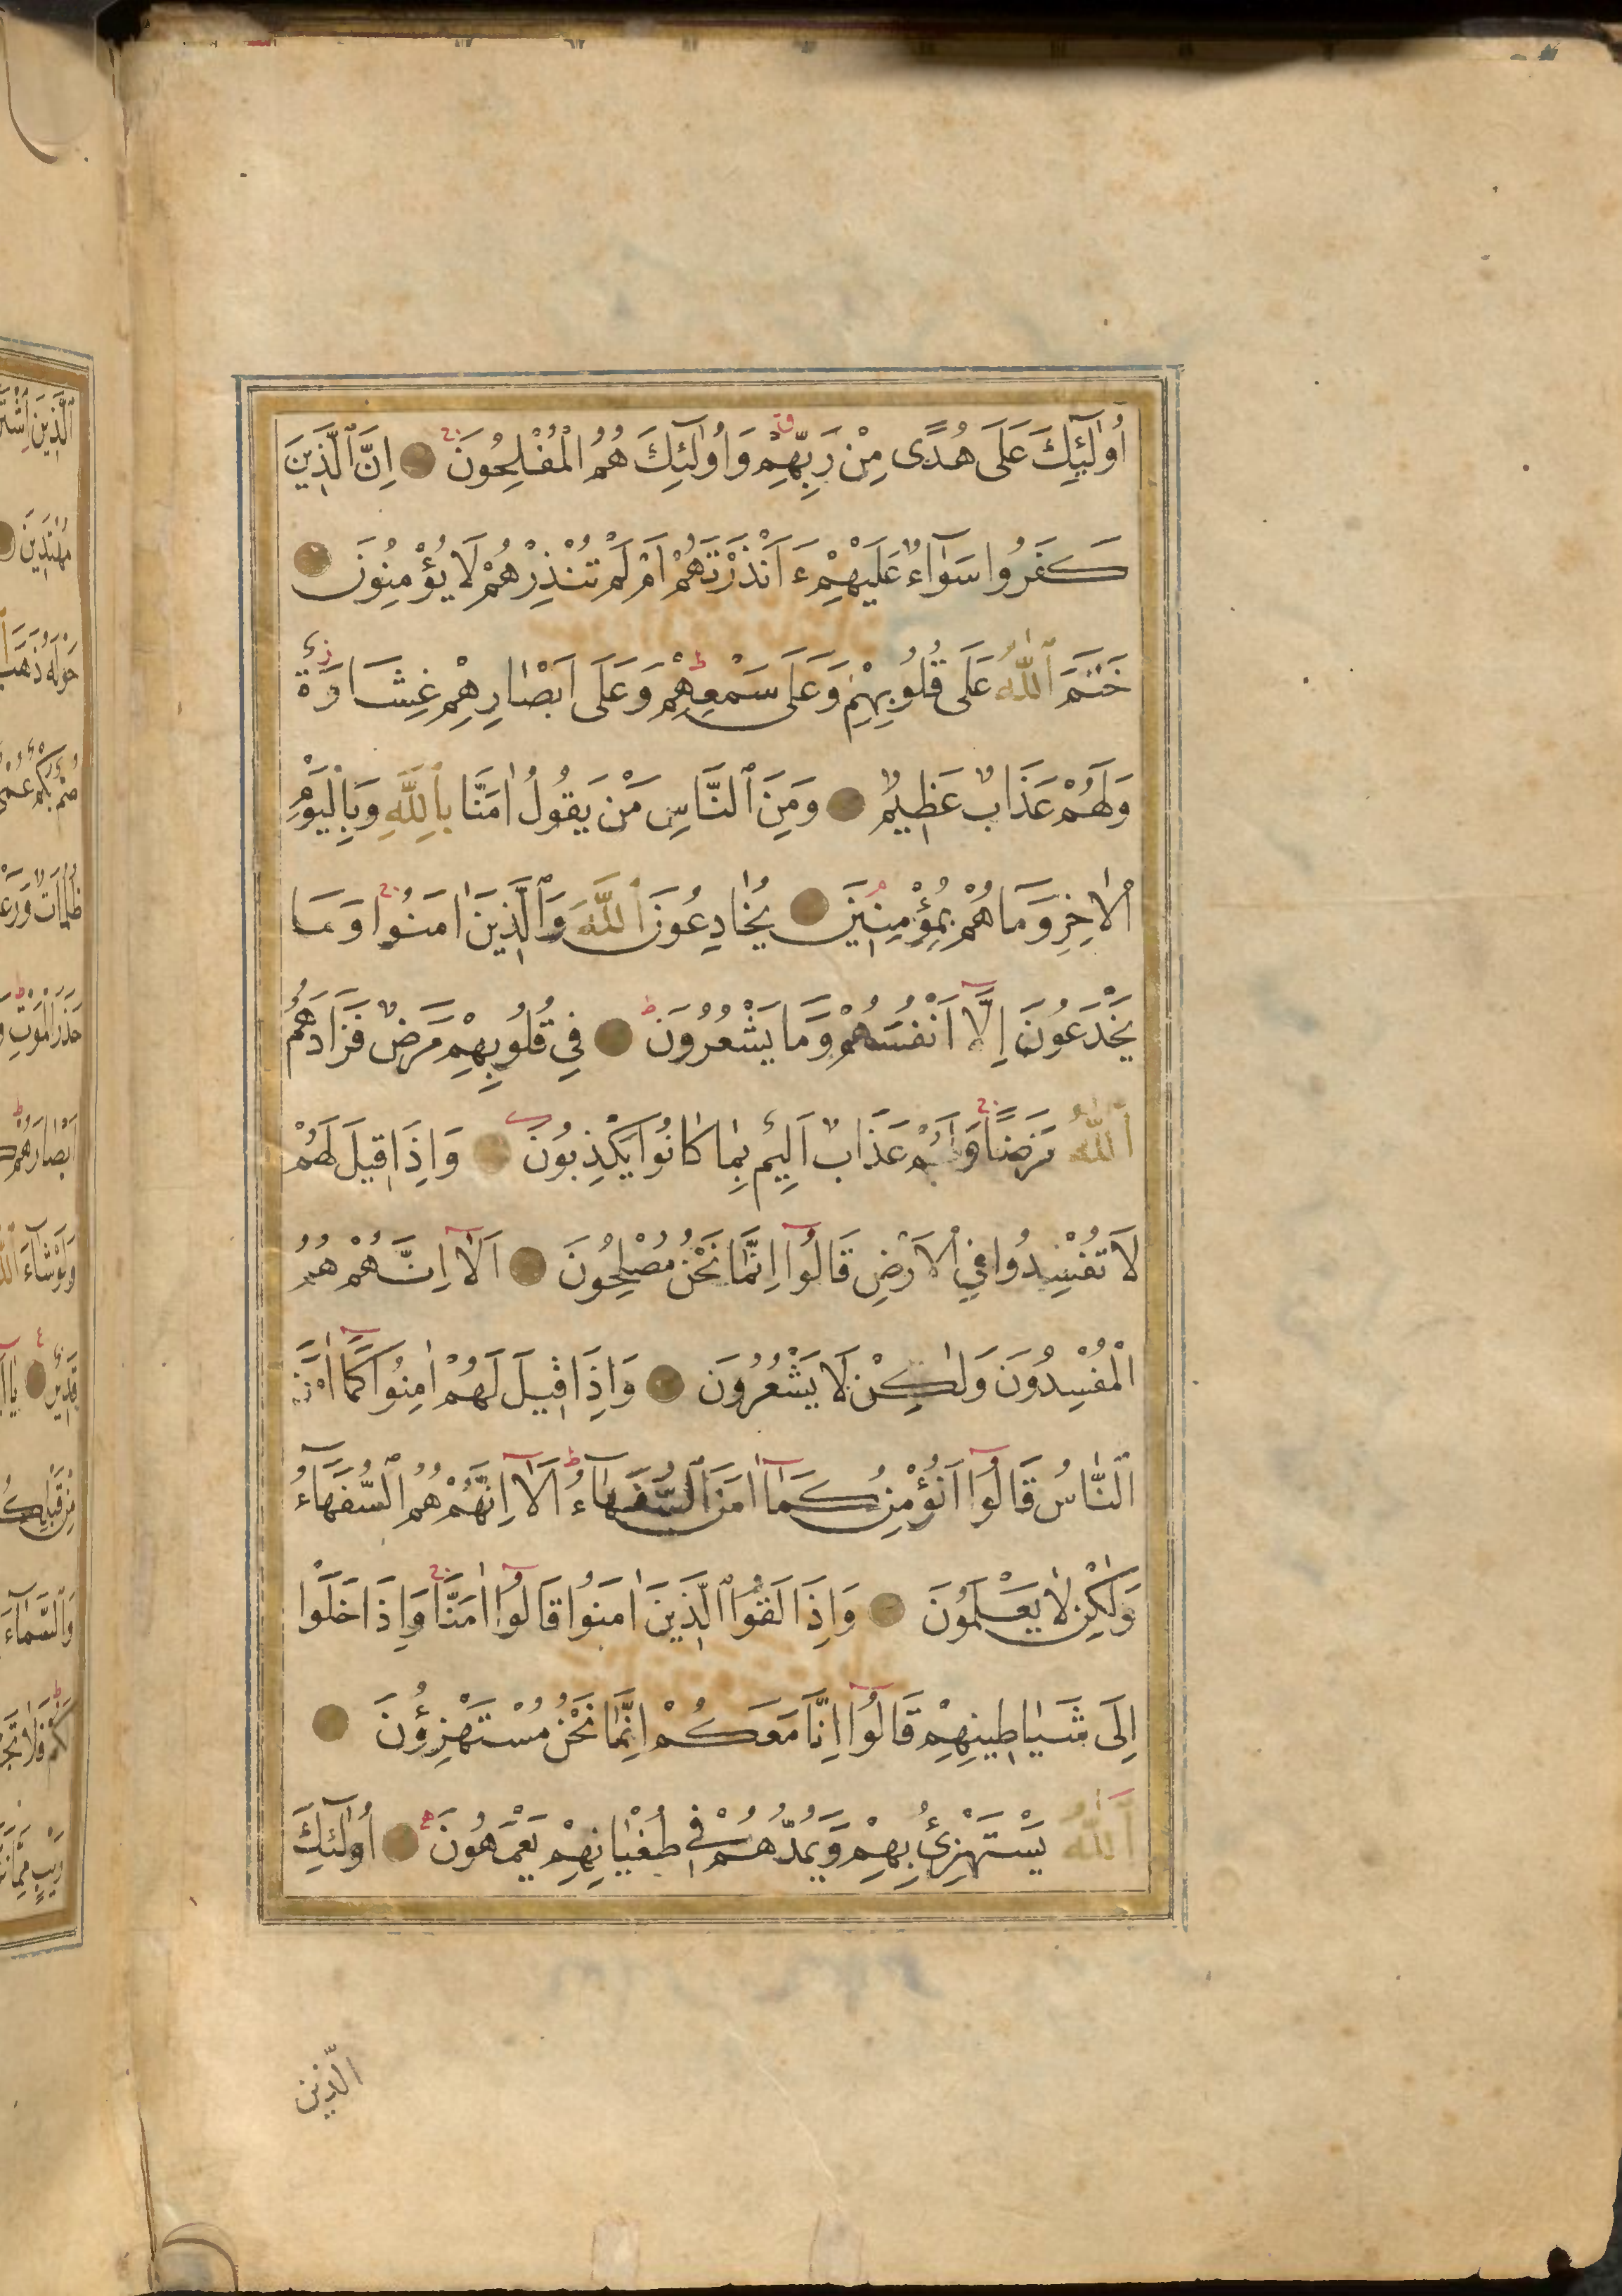 اُولٰٓئِكَ عَلَى هُدًى مِنْ رَبِّهِمْ وَاُولٰٓئِكَ هُمُ الْمُفْلِحُونَ اِنَّ الَّذِينَ
كَفَرُوا سَوَٓاءٌ عَلَيْهِمْ ءَاَنْذَرْتَهُمْ اَمْ لَمْ تُنْذِرْهُمْ لَا يُؤْمِنُونَ
خَتَمَ اللّٰهُ عَلَى قُلُوبِهِمْ وَعَلَى سَمْعِهِمْ وَعَلَى اَبْصَارِهِمْ غِشَاوَةٌ
وَلَهُمْ عَذَابٌ عَظِيمٌ وَمِنَ النَّاسِ مَنْ يَقُولُ اٰمَنَّا بِاللّٰهِ وَبِالْيَوْمِ
الْاٰخِرِ وَمَا هُمْ بِمُؤْمِنِينَ يُخَادِعُونَ اللّٰهَ وَالَّذِينَ اٰمَنُوا وَمَا
يَخْدَعُونَ اِلَّٓا اَنْفُسَهُمْ وَمَا يَشْعُرُونَ فِي قُلُوبِهِمْ مَرَضٌ فَزَادَهُمُ
اللّٰهُ مَرَضًا وَلَهُمْ عَذَابٌ اَلِيمٌ بِمَا كَانُوا يَكْذِبُونَ وَاِذَا قِيلَ لَهُمْ
لَا تُفْسِدُوا فِي الْاَرْضِ قَالُٓوا اِنَّمَا نَحْنُ مُصْلِحُونَ اَلَٓا اِنَّهُمْ هُمُ
الْمُفْسِدُونَ وَلٰكِنْ لَا يَشْعُرُونَ وَاِذَا قِيلَ لَهُمْ اٰمِنُوا كَمَٓا اٰمَنَ
النَّاسُ قَالُٓوا اَنُؤْمِنُ كَمَٓا اٰمَنَ السُّفَهَٓاءُ اَلَٓا اِنَّهُمْ هُمُ السُّفَهَٓاءُ
وَلٰكِنْ لَا يَعْلَمُونَ وَاِذَا لَقُوا الَّذِينَ اٰمَنُوا قَالُٓوا اٰمَنَّا وَاِذَا خَلَوْا
اِلَى شَيَاطِينِهِمْ قَالُٓوا اِنَّا مَعَكُمْ اِنَّمَا نَحْنُ مُسْتَهْزِؤُنَ
اَللّٰهُ يَسْتَهْزِئُ بِهِمْ وَيَمُدُّهُمْ فِي طُغْيَانِهِمْ يَعْمَهُونَ اُولٰٓئِكَ
الَّذِينَ